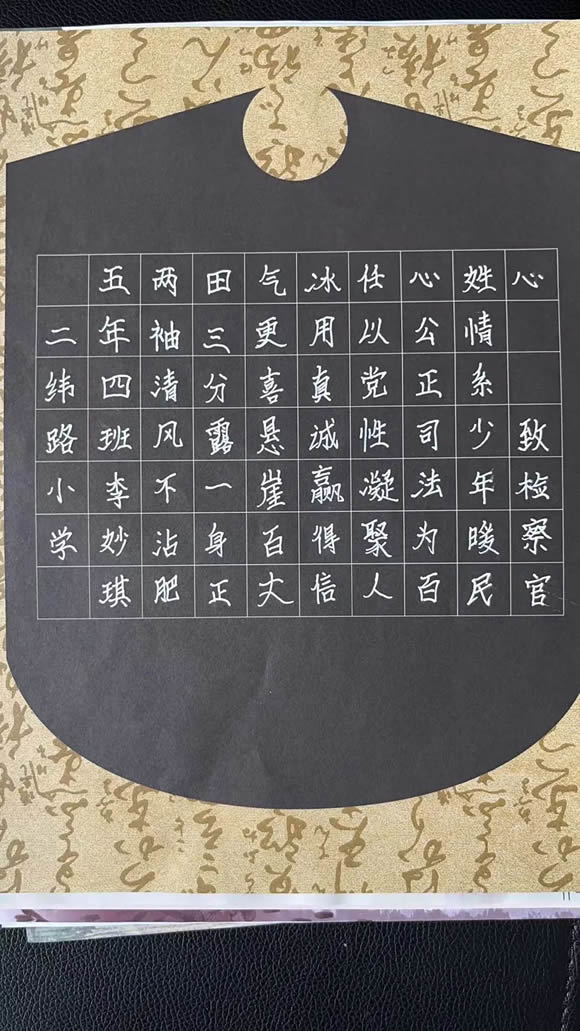 二纬路小学
五年四班李妙琪
两袖清风不沾肥
田三分露一身正
气更喜悬崖百丈
冰用真诚赢得信
任以党性凝聚人
心公正司法为百
姓情系少年暖民
心 致检察官